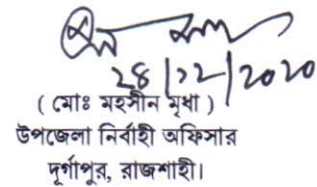 28/12/2020
( মোঃ মহসীন মৃধা )
উপজেলা নির্বাহী অফিসার
দূর্গাপুর, রাজশাহী।